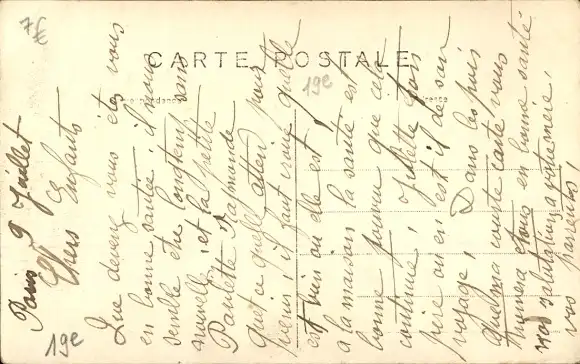 7€
CARTE POSTALE
19e
Paris 9 Juillet
Chers Enfants
Que devenez vous êtes vous
en bonne santée, il nous
semble être longtems sans
nouvelle, et la petite
Paulette Raymonde
qu'elle attend pour
venir, il faut croire qu'elle
est bien ou elle est,
a la maison la santé est
bonne pourvu que cela
continue, Juliette
pire ou en est il de son
voyage, Dans les puis
quelque courte carte vous
trouvera etons en bonne santé
nos salutation a votre mère,
vos parents,
19e